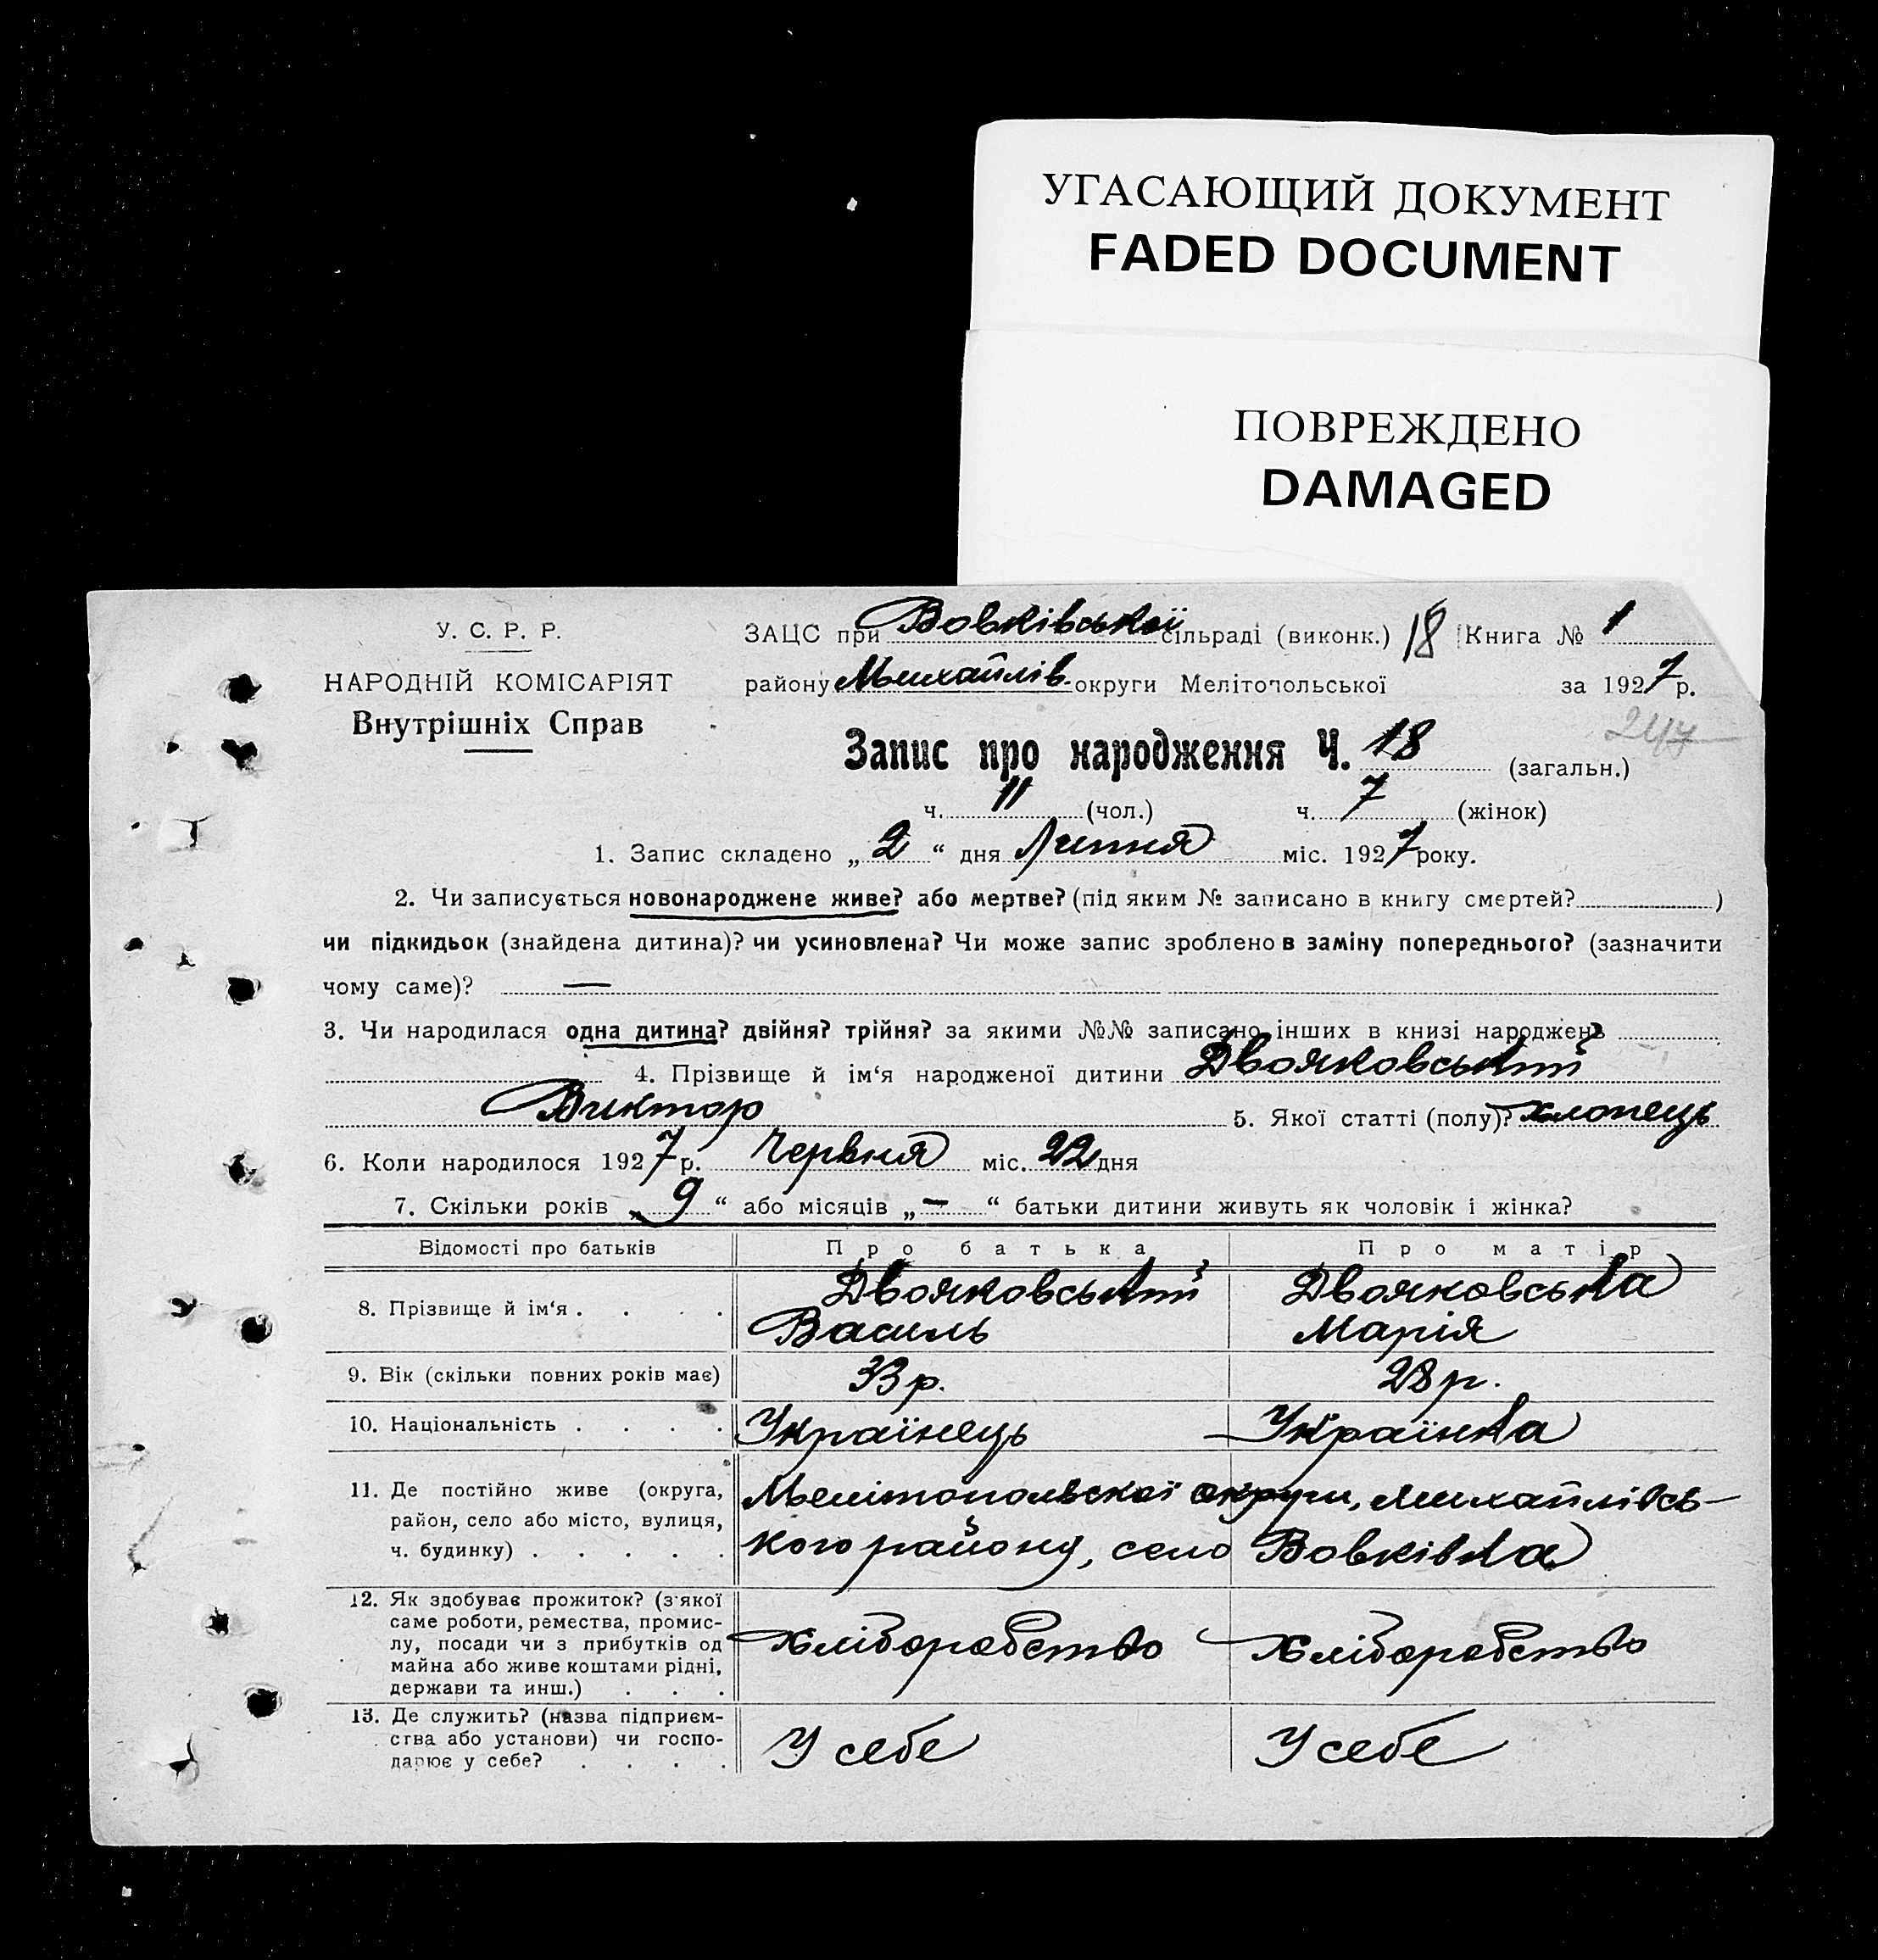 УГАСАЮЩИЙ ДОКУМЕНТ
FADED DOCUMENT
ПОВРЕЖДЕНО
DAMAGED
У. С. Р. Р.
НАРОДНІЙ КОМІСАРІЯТ
Внутрішніх Справ
ЗАЦС при Вовківської сільраді (виконк.) 18 Книга № 1
району Михайлів. округи Мелітопольської за 1927 р.
247
Запис про народження Ч. 18 (загальн.)
ч. 11 (чол.) ч. 7 (жінок)
1. Запис складено „ 2 “ дня Липня міс. 1927 року.
2. Чи записується новонароджене живе? або мертве? (під яким № записано в книгу смертей? )
чи підкидьок (знайдена дитина)? чи усиновлена? Чи може запис зроблено в заміну попереднього? (зазначити
чому саме)? —
3. Чи народилася одна дитина? двійня? трійня? за якими №№ записано інших в книзі народжень
4. Прізвище й ім‘я народженої дитини Двояковський
Виктор 5. Якої статті (полу)? хлопець
6. Коли народилося 1927 р. Червня міс. 22 дня
7. Скільки років „ 9 “ або місяців „ — “ батьки дитини живуть як чоловік і жінка?
Відомості про батьків Про батька Про матір
8. Прізвище й ім‘я . . . . Двояковський Двояковська
Василь Марія
9. Вік (скільки повних років має) 33 р. 28 р.
10. Національність . . . . Українець Українка
11. Де постійно живе (округа,
район, село або місто, вулиця,
ч. будинку) . . . . .
Мелітопольскої округи, Михайлівсь-
кого району, село Вовківка
12. Як здобуває прожиток? (з‘якої
саме роботи, ремества, промис-
лу, посади чи з прибутків од
майна або живе коштами рідні,
держави та инш.) . . .
Хліборобство Хліборобство
13. Де служить? (назва підприєм-
ства або установи) чи госпо-
дарює у себе? . . . .
У себе У себе